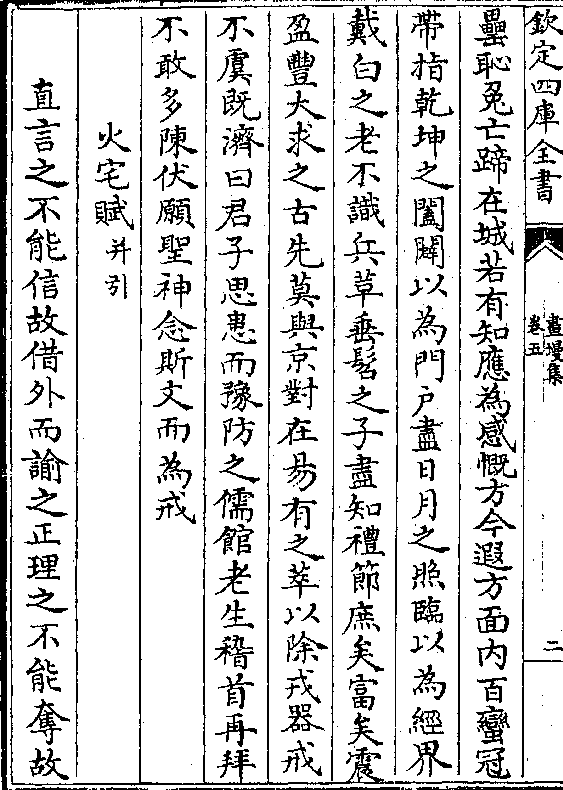 欽定四庫全書
畫墁集
卷五
二
壘恥兔亡蹄在城若有知應為感慨方今遐方面内百蠻冠
帶指乾坤之闔闢以為門戸盡日月之照臨以為經界
戴白之老不識兵草垂髫之子盡知禮節庶矣富矣震
盈豐大求之古先莫與京對在易有之萃以除戎器戒
不虞既濟曰君子思患而豫防之儒館老生稽首再拜
不敢多陳伏願聖神念斯文而為戒
火宅賦并引
直言之不能信故借外而諭之正理之不能奪故